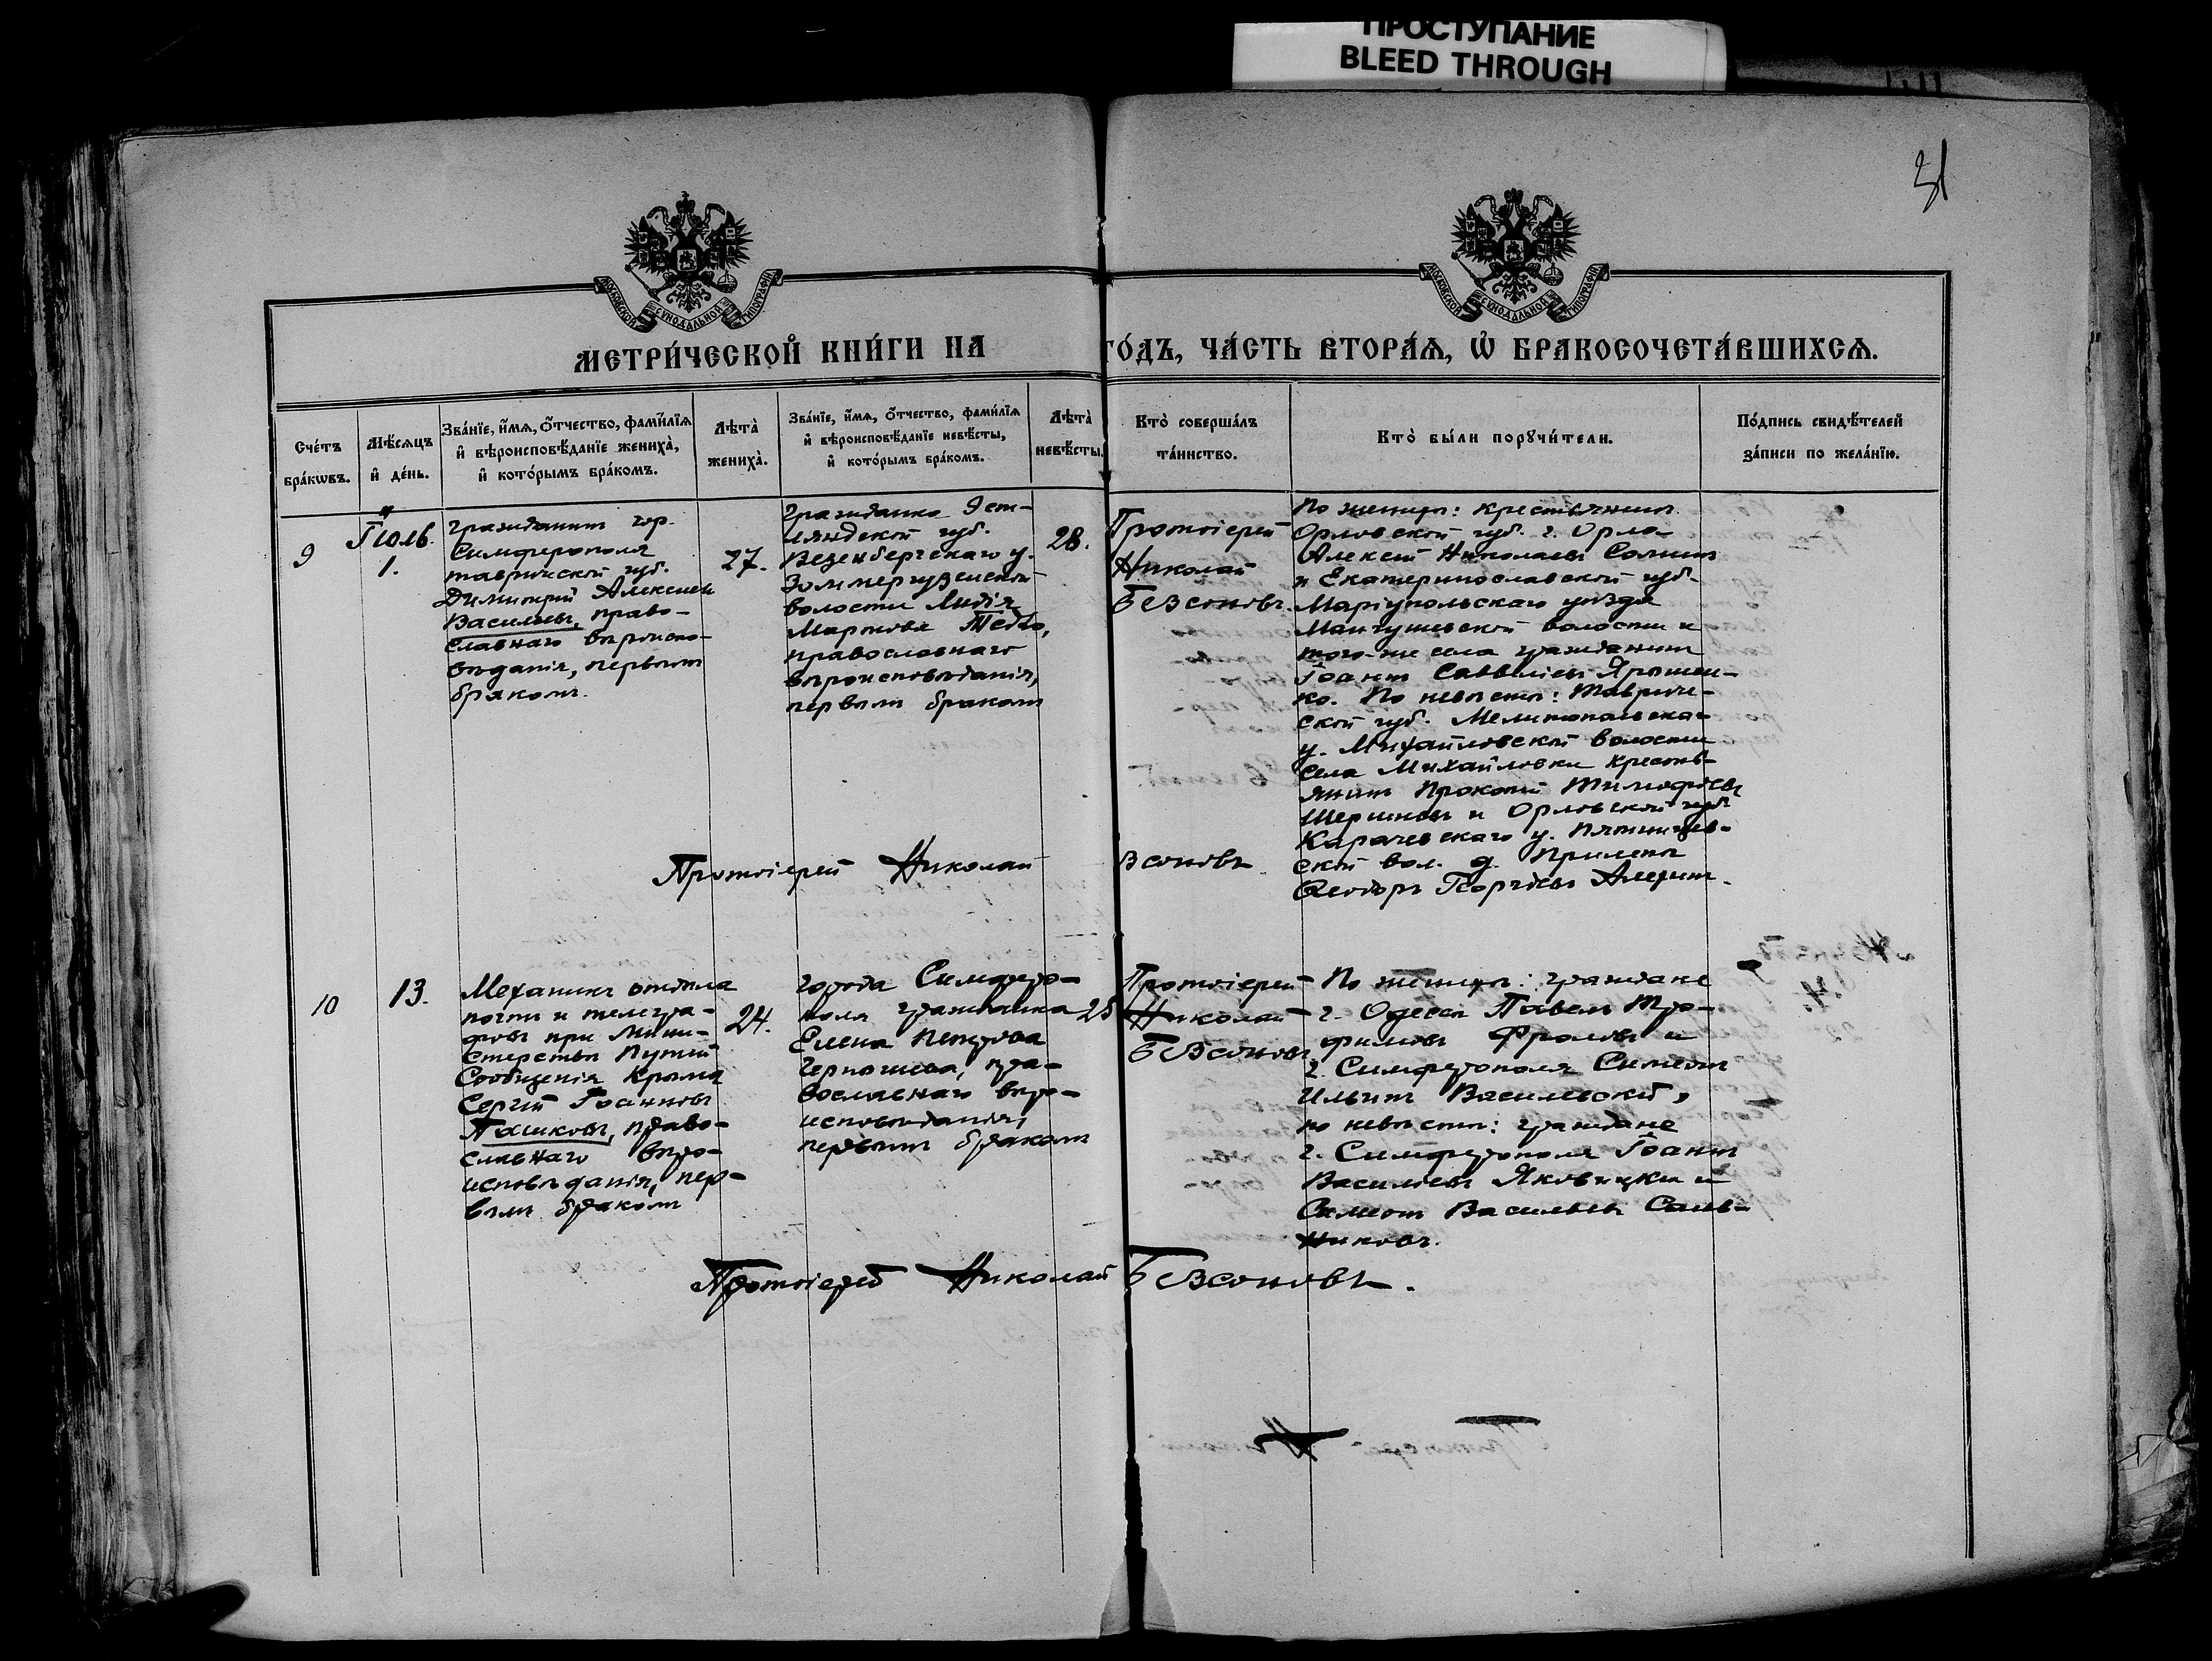 ПРОСТУПАНИЕ
BLEED THROUGH
31
МОСКОВСКОЙ СѴНОДАЛЬНОЙ ТИПОГРАФІИ
МОСКОВСКОЙ СѴНОДАЛЬНОЙ ТИПОГРАФІИ
МЕТРИ́ЧЕСКОЙ КНИ́ГИ НА ГО́ДЪ, ЧА́СТЬ ВТОРА́Я, Ѡ҆ БРАКОСОЧЕТА́ВШИХСЯ.
Сче́тъ
бра́кѡвъ.
Мѣ́сяцъ
и҆ де́нь.
Зва́нїе, и҆́мя, ѻ҆́тчество, фами́лїя
и҆ вѣроисповѣ́данїе жениха̀,
и҆ кото́рымъ бра́комъ.
Лѣта̀
жениха̀.
Зва́нїе, и҆́мя, ѻ҆́тчество, фами́лїя
и҆ вѣроисповѣ́данїе невѣ́сты,
и҆ кото́рымъ бра́комъ.
Лѣта̀
невѣ́сты.
Кто̀ соверша́лъ
та́инство.
Кто̀ бы́ли порꙋчи́тели.
По́дпись свидѣ́телей
за́писи по жела́нїю.
9
Іюль
1.
Гражданинъ гор.
Симферополя
таврической губ.
Димитрій Алексѣевъ
Васильевъ, право-
славнаго вѣроиспо-
вѣданія, первымъ
бракомъ.
27.
Гражданка Эст-
ляндской губ.
Везенбергскаго у.
волости Лидія
Мартова
православнаго
вѣроисповѣданія,
первымъ бракомъ
28.
Протоіерей
Николай
Безсоновъ.
По женихѣ: крестьянинъ
Орловской губ. г. Орла
Алексѣй Николаевъ
и Екатеринославской губ.
Маріупольскаго уѣзда
Мангушевской волости и
того-же села гражданинъ
Іоаннъ Савельевъ Ярошен-
ко. По невѣстѣ: Тавриче-
ской губ. Мелитопольскаго
у. Михайловской волости
села Михайловки кресть-
янинъ Прокопій Тимофѣевъ
и Орловской губ.
Карачевскаго у. Пятницкой
ской вол. д.
Ѳеодоръ Георгіевъ
Протоіерей Николай Безсоновъ
10
13.
Механикъ отдѣла
почтъ и телегра-
фовъ при Мини-
стерствѣ Путей
Сообщенія Крыма
Сергѣй Іоанновъ
Пашковъ, право-
славнаго вѣро-
исповѣданія, пер-
вымъ бракомъ
24.
города Симферо-
поля гражданка
Елена Петрова
Чернышева, пра-
вославнаго вѣро-
исповѣданія,
первымъ бракомъ
25
Протоіерей
Николай
Безсоновъ
По женихѣ: граждане
г. Одессы Павелъ Тро-
фимовъ Фроловъ и
г. Симферополя Симеонъ
Ильинъ Василевскій,
по невѣстѣ: граждане
г. Симферополя Іоаннъ
Васильевъ и
Симеонъ Васильевъ Саль-
никовъ.
Протоіерей Николай Безсоновъ.